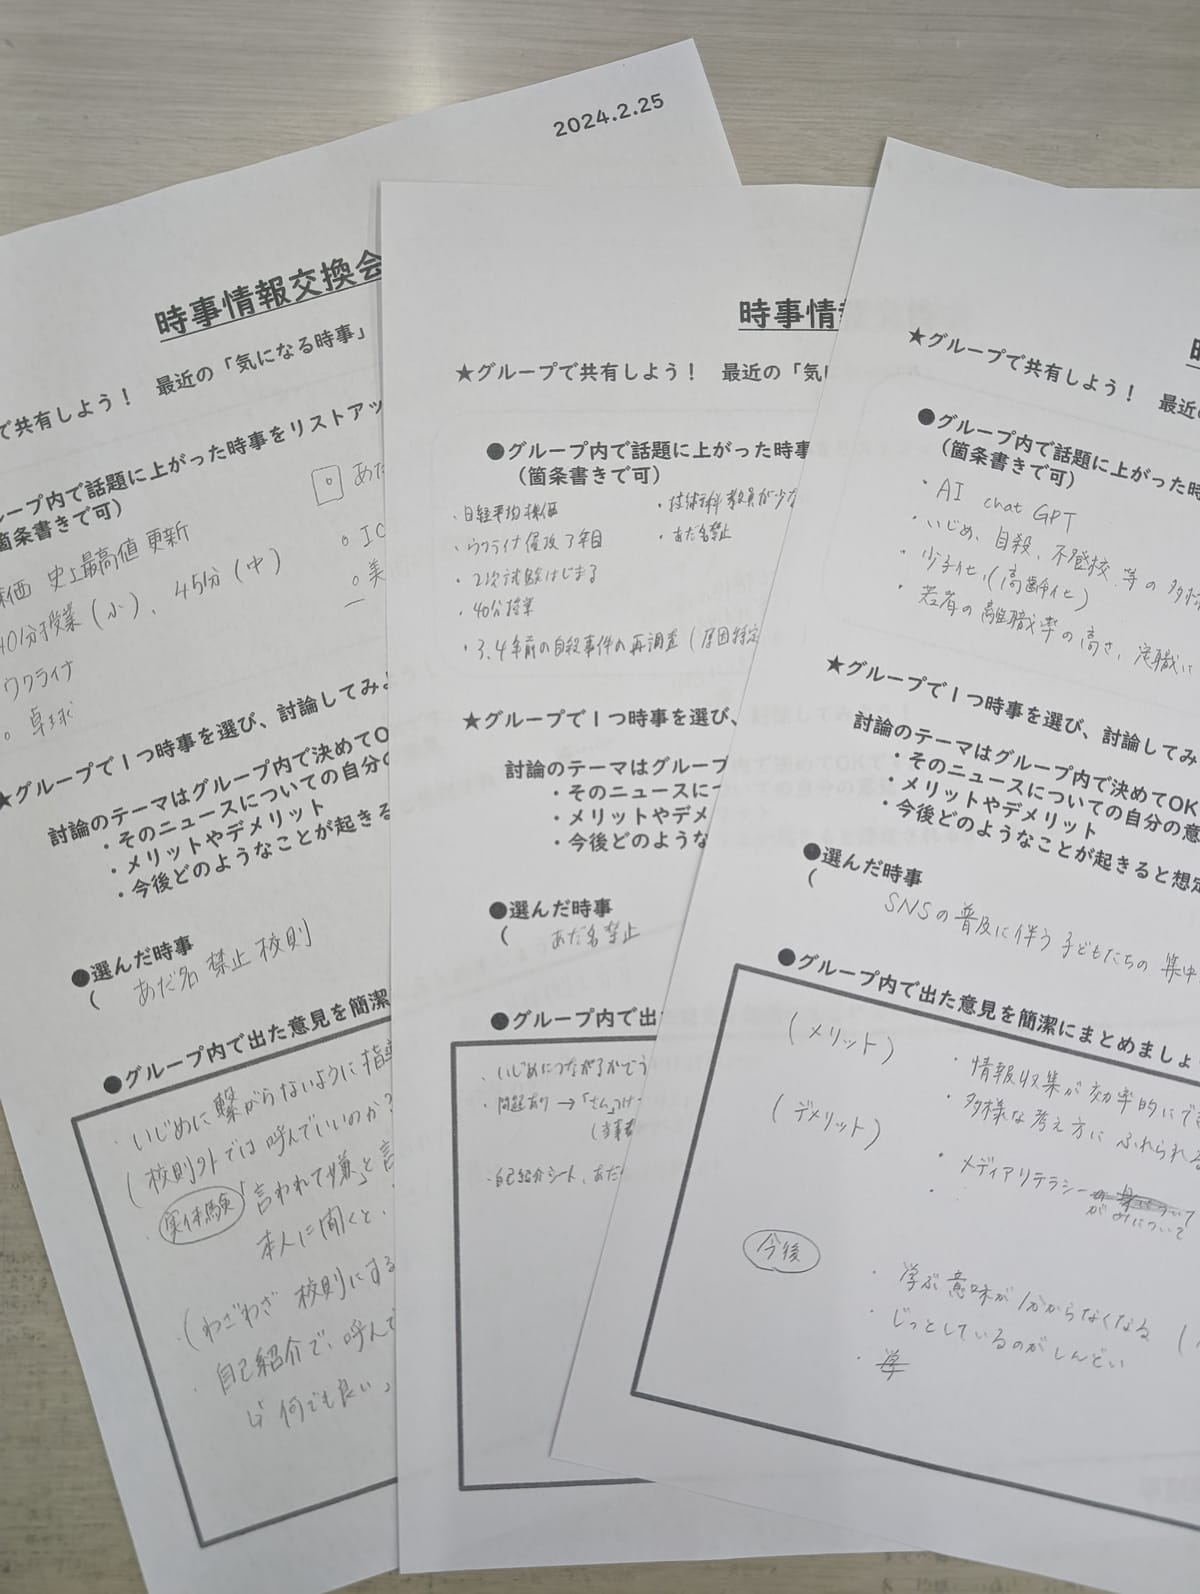 2024.2.25
時事情報交換会
で共有しよう！ 最近の「気になる時事」
ループ内で話題に上がった時事をリストアッ
箇条書きで可）
株価 史上最高値 更新
40分授業（小）、45分（中）
ウクライナ
。卓球
あだ
。IC
。美
★グループで1つ時事を選び、討論してみよ
討論のテーマはグループ内で決めてO
・そのニュースについての自分の
・メリットやデメリット
・今後どのようなことが起きる
●選んだ時事
（ あだ名 禁止 校則
●グループ内で出た意見を簡潔
・いじめに繋がらないように指導
（校則外では呼んでいいのか？
・実体験「言われて嫌」と言
本人に聞くと、
・（わざわざ 校則にする
・自己紹介で、呼んで
↳"何でも良い、
時事情
★グループで共有しよう！ 最近の「気に
●グループ内で話題に上がった時事
（箇条書きで可）
・日経平均株価
・ウクライナ侵攻3年目
・2次試験はじまる
・40分授業
・3、4年前の自殺事件の再調査（原因特定
・技術科教員が少な
・あだ名禁止
★グループで1つ時事を選び、
討論のテーマはグループ
・そのニュースに
・メリットやデメ
・今後どのような
●選んだ時事
（ あだ名禁止
●グループ内で出
・いじめにつながるかどう
・問題有り→「さん」付け
（当事者
・自己紹介シート、あだ
時
★グループで共有しよう！ 最近
●グループ内で話題に上がった時
（箇条書きで可）
・AI chat GPT
・いじめ、自殺、不登校、等の多様
・少子化、（高齢化）
・若者の離職率の高さ、
★グループで1つ時事を選び、討論してみ
討論のテーマはグループ内で決めてOK
・そのニュースについての自分の意
・メリットやデメリット
・今後どのようなことが起きると想定
●選んだ時事
（ SNSの普及に伴う子どもたちの 集中
●グループ内で出た意見を簡潔にまとめましょ
（メリット）
・情報収集が効率的にでき
・多様な考え方に ふれられる
（デメリット）
・メディアリテラシー
が身について
今後
・学ぶ意味が分からなくなる（
・じっとしているのがしんどい
・学